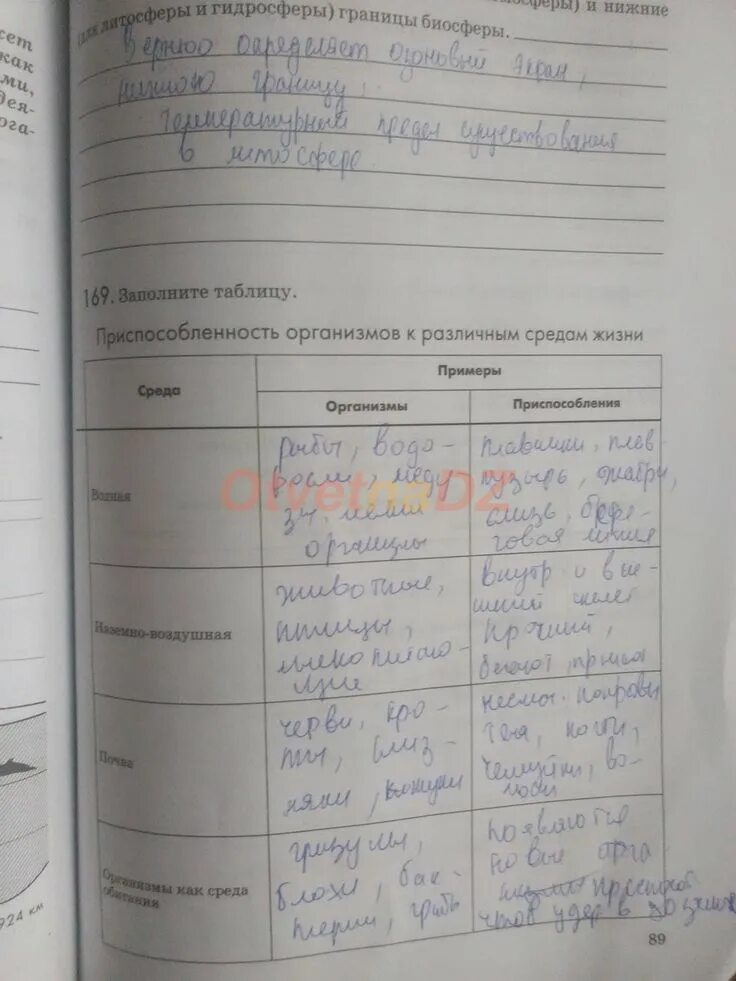 сет
как
ми,
дея-
ога-
сферы) и нижние
(для литосферы и гидросферы) границы биосферы.
Верхнюю определяет озоновый экран,
нижнюю границу,
температурный предел существования
в литосфере
169. Заполните таблицу.
Приспособленность организмов к различным средам жизни
Среда
Примеры
Организмы
Приспособления
Водная
рыбы, водо-
росли, меду
зы.
организмы
плавники, плав.
пузырь, жабры,
слизь.
говая линия
Наземно-воздушная
животные,
птицы,
млекопитаю-
щие
внутр и вне-
шний скелет
прочный,
бегают, прыга
Почва
черви, кро-
ты, слиз-
няки,
покровы
тела, когти,
чешуйки, во-
лоски
Организмы как среда
обитания
блохи, бак-
терии, грибы
появляются
новые орга
удер в хозяине
924 км
OtvetnaDZ
89